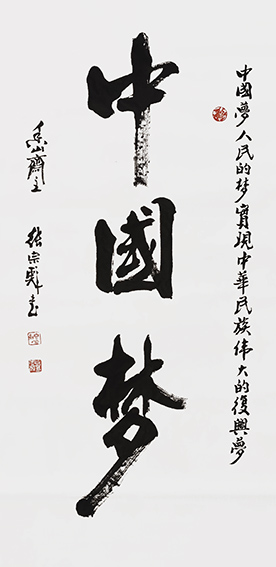 中國夢人民的梦實現中華民族伟大的復興夢
中國梦
山齋主